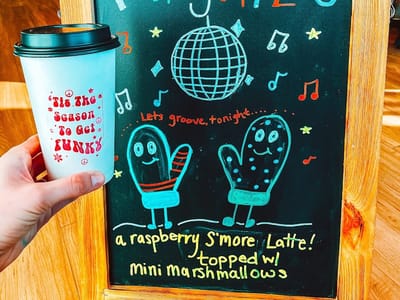 'Tis The
Season
To Get
FUNKY
Let's groove, tonight....
a raspberry S'more Latte!
topped w/
mini marshmallows